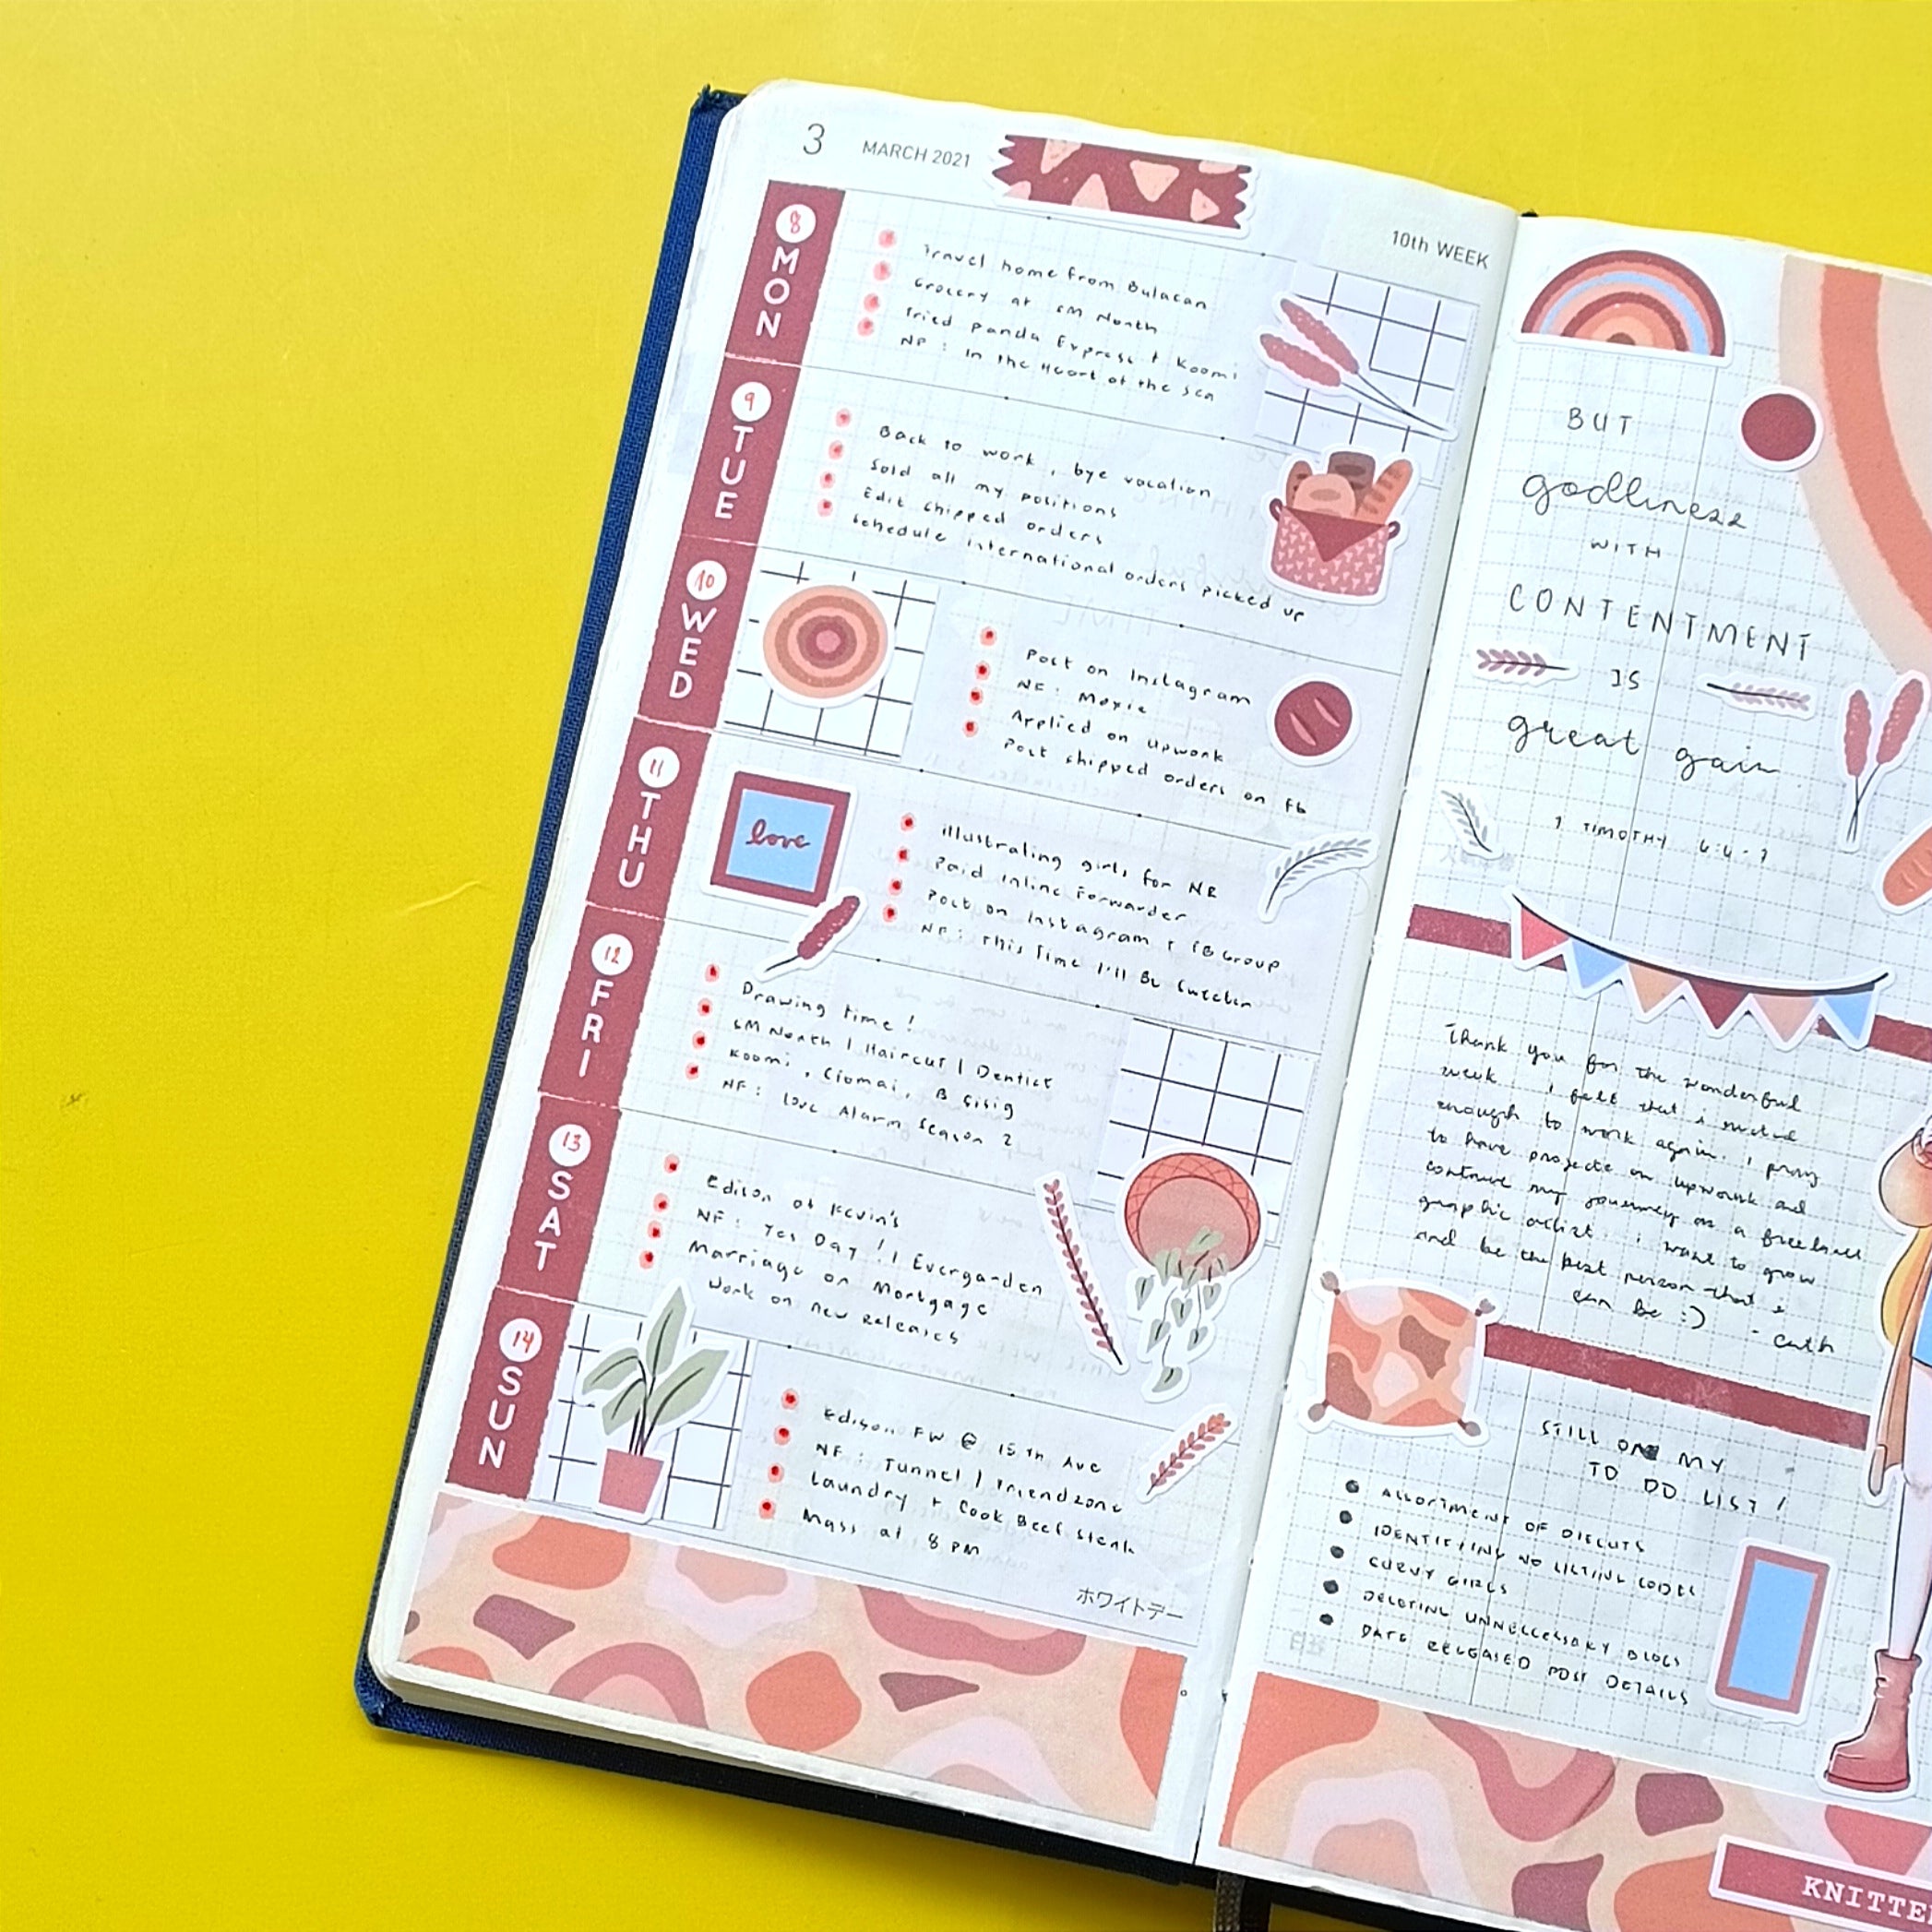 3 MARCH 2021
10th WEEK
8 MON
Travel home from Bulacan
Grocery at SM North
Tried Panda Express + Koomi
NF: In the Heart of the Sea
9 TUE
Back to work, bye vacation
Sold all my positions
Edit shipped orders
Schedule international orders picked up
10 WED
Post on Instagram
NF: Moxie
Applied on upwork
Post shipped orders on fb
11 THU
love
illustrating girls for NR
Paid Inline Forwarder
Post on Instagram + FB Group
NF: This Time I'll Be Sweeter
12 FRI
Drawing time!
SM North | Haircut | Dentist
Koomi, Siomai, B Sisig
NF: Love Alarm Season 2
13 SAT
Edison at Kevin's
NF: Yes Day! | Evergarden
Marriage or Mortgage
Work on new Releases
14 SUN
Edison FW @ 15th Ave
NF: Tunnel | Friendzone
Laundry + Cook Beef Steak
Mass at 8 PM
ホワイトデー
BUT
godliness
WITH
CONTENTMENT
IS
great gain
1 TIMOTHY 6:6-7
Thank you for the wonderful
week. I felt that I rested
enough to work again. I pray
to have projects on upwork and
continue my journey as a freelance
graphic artist. I want to grow
and be the best person that I
can be :) - Cath
STILL ON MY
TO DO LIST!
ASSORTMENT OF DIECUTS
IDENTIFYING NO LISTING CODES
CURVY GIRLS
DELETING UNNECESSARY BLOGS
DATE RELEASED POST DETAILS
KNITTE